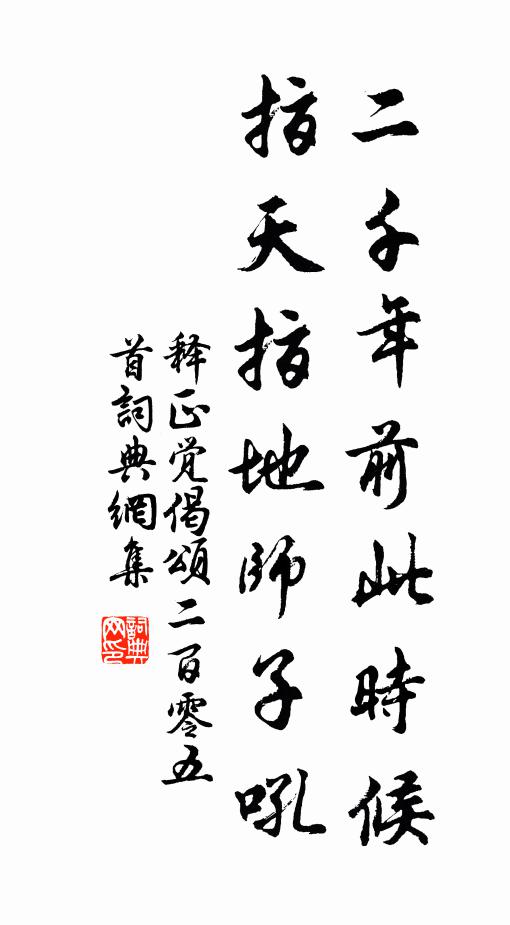 二千年前此時候
指天指地師子吼
释正觉偈頌二百零五
首詞典網集
詞典
网印